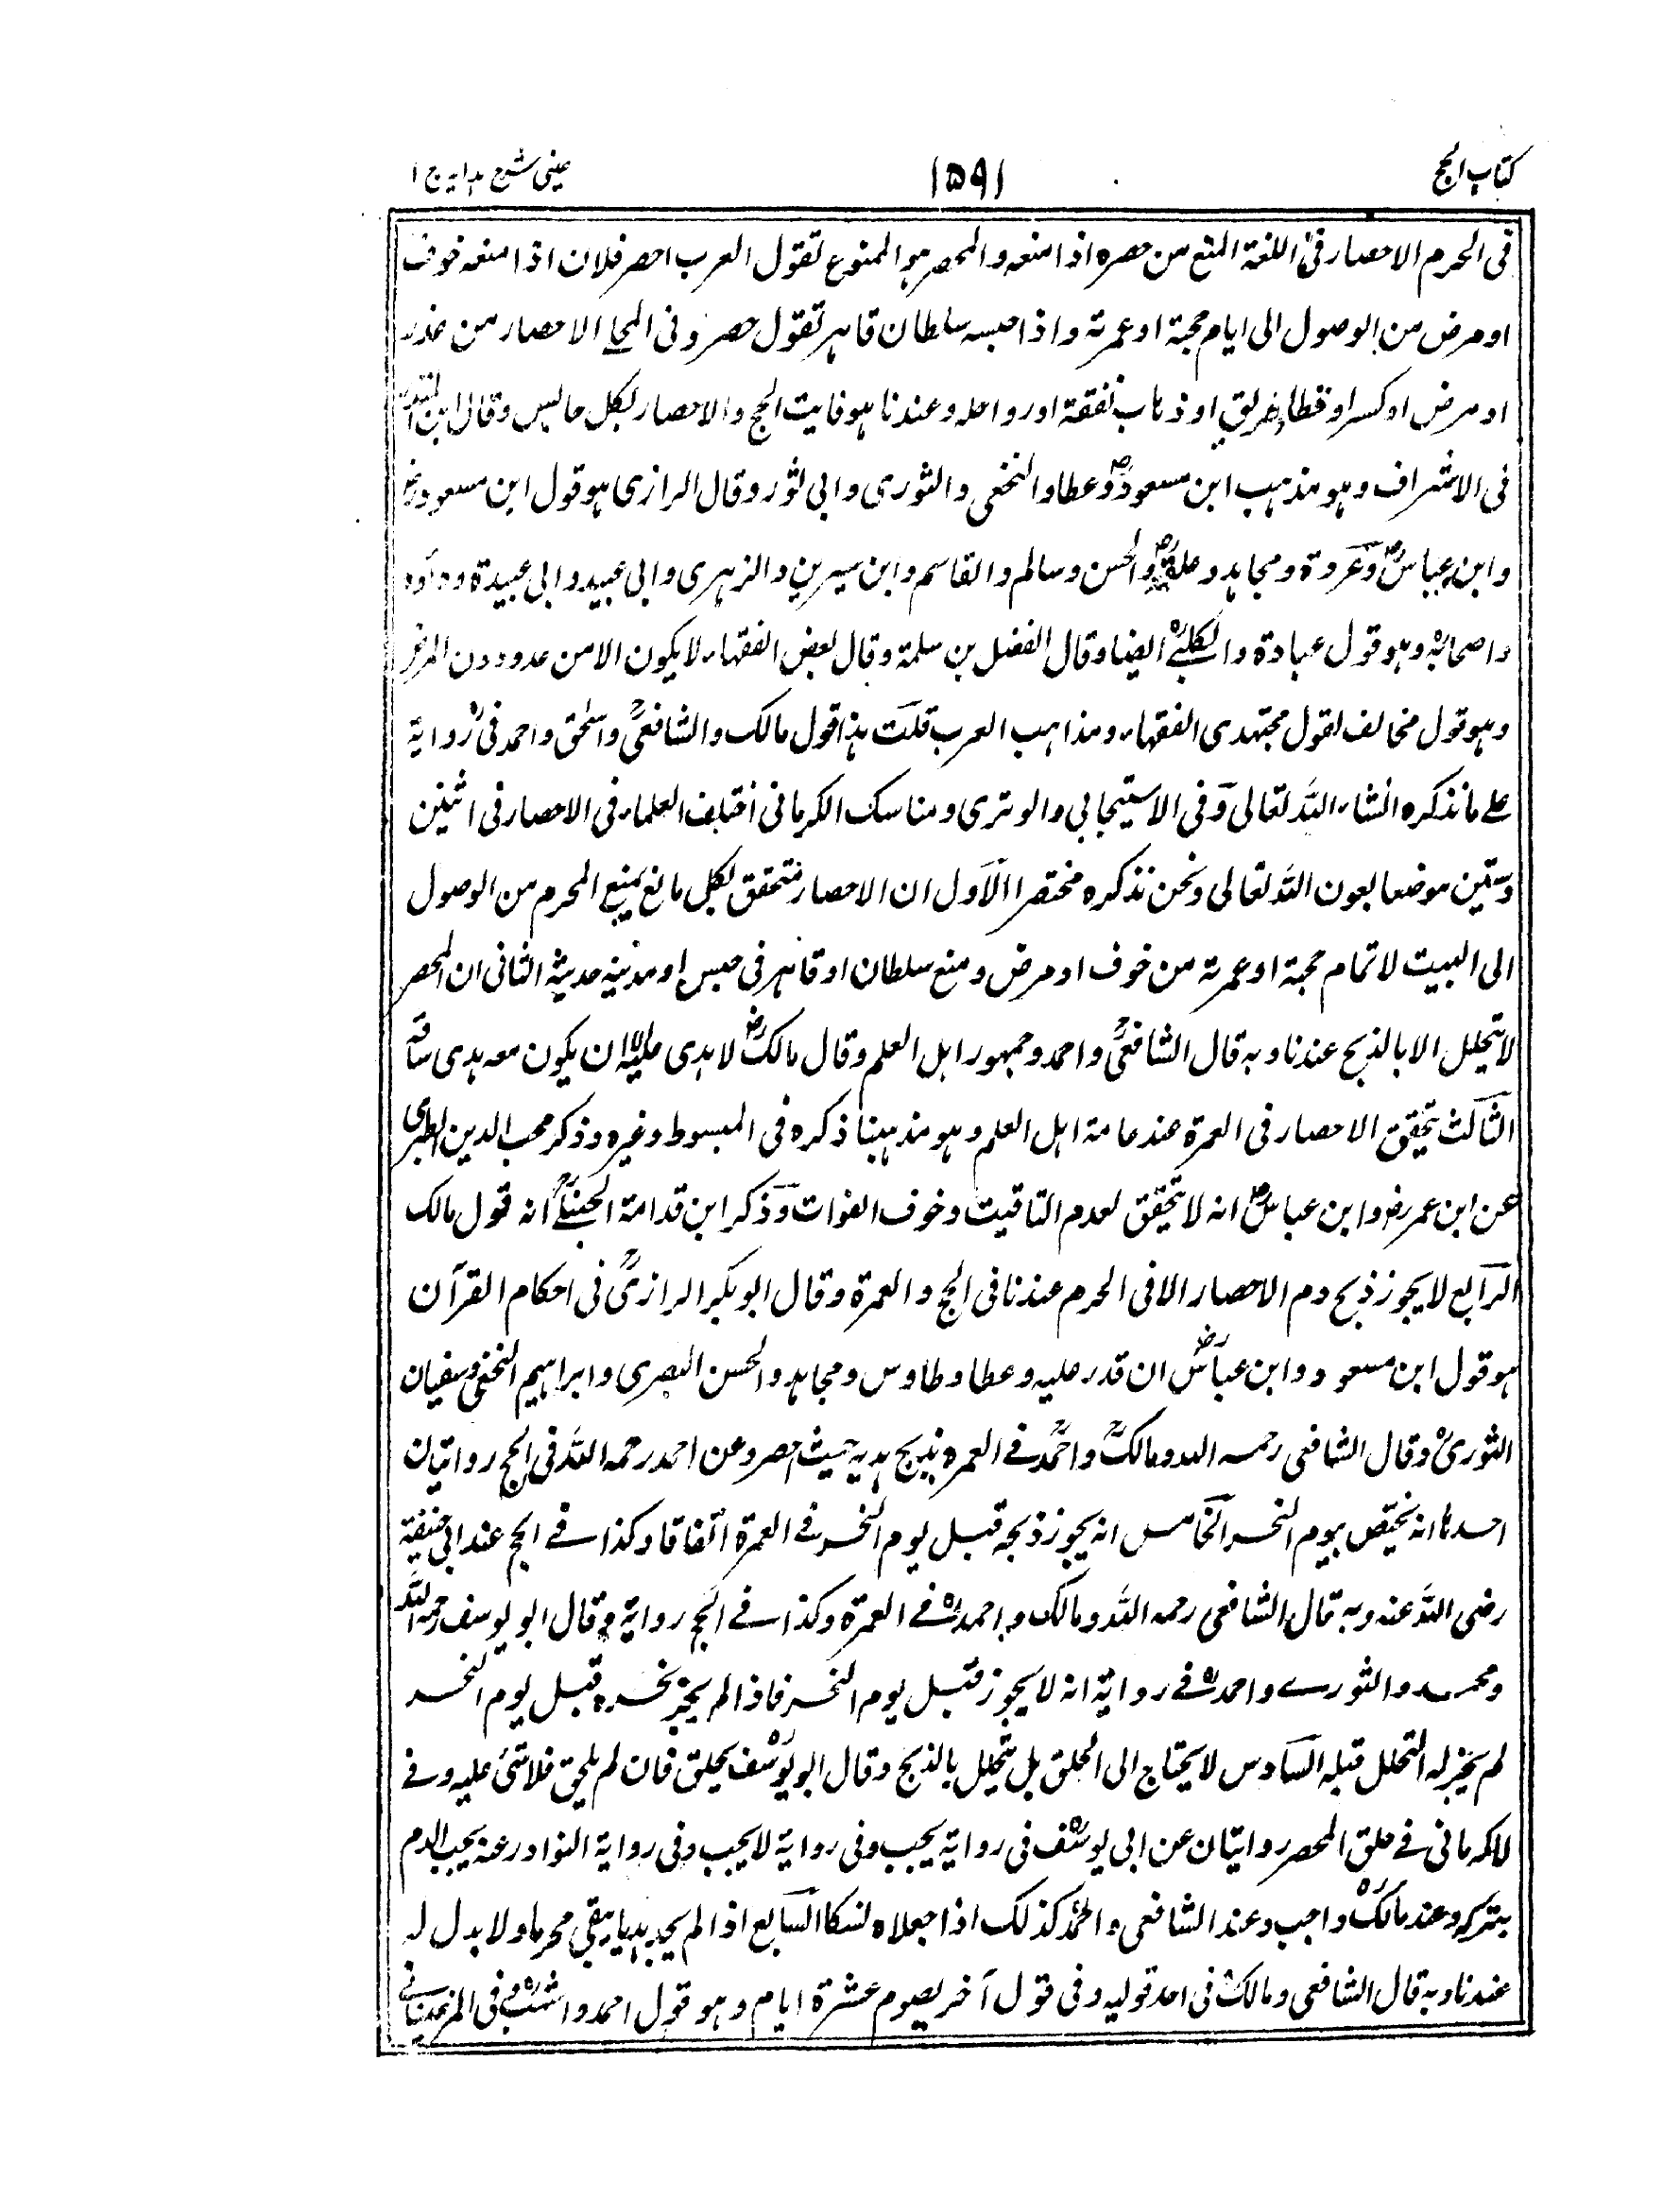 كتاب الحج
١٥٩١
عينى شرح هداية ج ا
فى الحرم الاحصار فى اللغة المنع من حصره اذا منعه والمحصر هو الممنوع تقول العرب احصر فلان اذا منعه خوف
او مرض من الوصول الى ايام حجة او عمرته واذا حبسه سلطان قاهر تقول حصر وفى المحلى الاحصار من عذر
او مرض او كسر او قطاع طريق او ذهاب نفقة او رواحله وعندنا هو فايت الحج والاحصار لكل حابس وقال ابن المنذر
فى الاشراف وهو مذهب ابن مسعودؓ وعطا والنخعى والثورى وابى ثور وقال الرازى هو قول ابن مسعود رض
وابن عباسؓ وعروة ومجاهد وعلقمة والحسن وسالم والقاسم وابن سيرين والزهرى وابى عبيد وابى عبيدة وداود
واصحابه وهو قول عبادة والكلبى ايضا وقال الفضل بن سلمة وقال بعض الفقهاء لا يكون الا من عدو دون المرض
وهو قول مخالف لقول مجتهدى الفقهاء ومذاهب العرب قلت هذا قول مالك والشافعىؒ واسحق واحمد فى رواية
على ما نذكره انشاء الله تعالى وفى الاسبيجابى والوترى ومناسك الكرمانى اختلف العلماء فى الاحصار فى اثنين
وستين موضعا بعون الله تعالى ونحن نذكره مختصرا الاول ان الاحصار متحقق لكل مانع يمنع المحرم من الوصول
الى البيت لاتمام حجة او عمرته من خوف او مرض ومنع سلطان او قاهر فى حبس او مدينة حديثة الثانى ان المحصر
لا يتحلل الا بالذبح عندنا وبه قال الشافعىؒ واحمد وجمهور اهل العلم وقال مالكؒ لا هدى عليه الا ان يكون معه هدى ساقه
الثالث تحقيق الاحصار فى العمرة عند عامة اهل العلم وهو مذهبنا ذكره فى المبسوط وغيره وذكر محب الدين الطبرى
عن ابن عمر رض وابن عباسؓ انه لا تحقق لعدم التاقيت وخوف الفوات وذكر ابن قدامة الحنبلىؒ انه قول مالك
الرابع لا يجوز ذبح دم الاحصار الا فى الحرم عندنا فى الحج والعمرة وقال ابو بكر الرازىؒ فى احكام القرآن
هو قول ابن مسعود وابن عباسؓ ان قدر عليه وعطا وطاوس ومجاهد والحسن البصرى وابراهيم النخعى وسفيان
الثورىؒ وقال الشافعى رحمه الله ومالكؒ واحمدؒ فے العمرة يذبح هديه حيث احصر وعن احمد رحمه الله فى الحج روايتان
احدهما انه يختص بيوم النحر الخامس انه يجوز ذبحه قبل يوم النحر فے العمرة اتفاقا وكذا فے الحج عند ابى حنيفة
رضى الله عنه وبه قال الشافعى رحمه الله ومالك واحمدؒ فے العمرة وكذا فے الحج رواية وقال ابو يوسف رحمه الله
ومحمد والثورے واحمدؒ فے رواية انه لا يجوز قبل يوم النحر فاذا لم يجز نحره قبل يوم النحر
لم يجز له التحلل قبله السادس لا يحتاج الى الحلق بل يتحلل بالذبح وقال ابو يوسفؒ يحلق فان لم يحلق فلا شئ عليه وفے
الكرمانى فے حلق المحصر روايتان عن ابى يوسفؒ فى رواية يجب وفى رواية لا يجب وفى رواية النوادر عنه يجب الدم
بتركه وعند مالكؒ واجب وعند الشافعى واحمدؒ كذلك اذا جعلاه نسكا السابع اذا لم يجد هديا يبقى محرما ولا بدل له
عندنا وبه قال الشافعى ومالكؒ فى احد قوليه وفى قول آخر يصوم عشرة ايام وهو قول احمد واشهبؒ فى